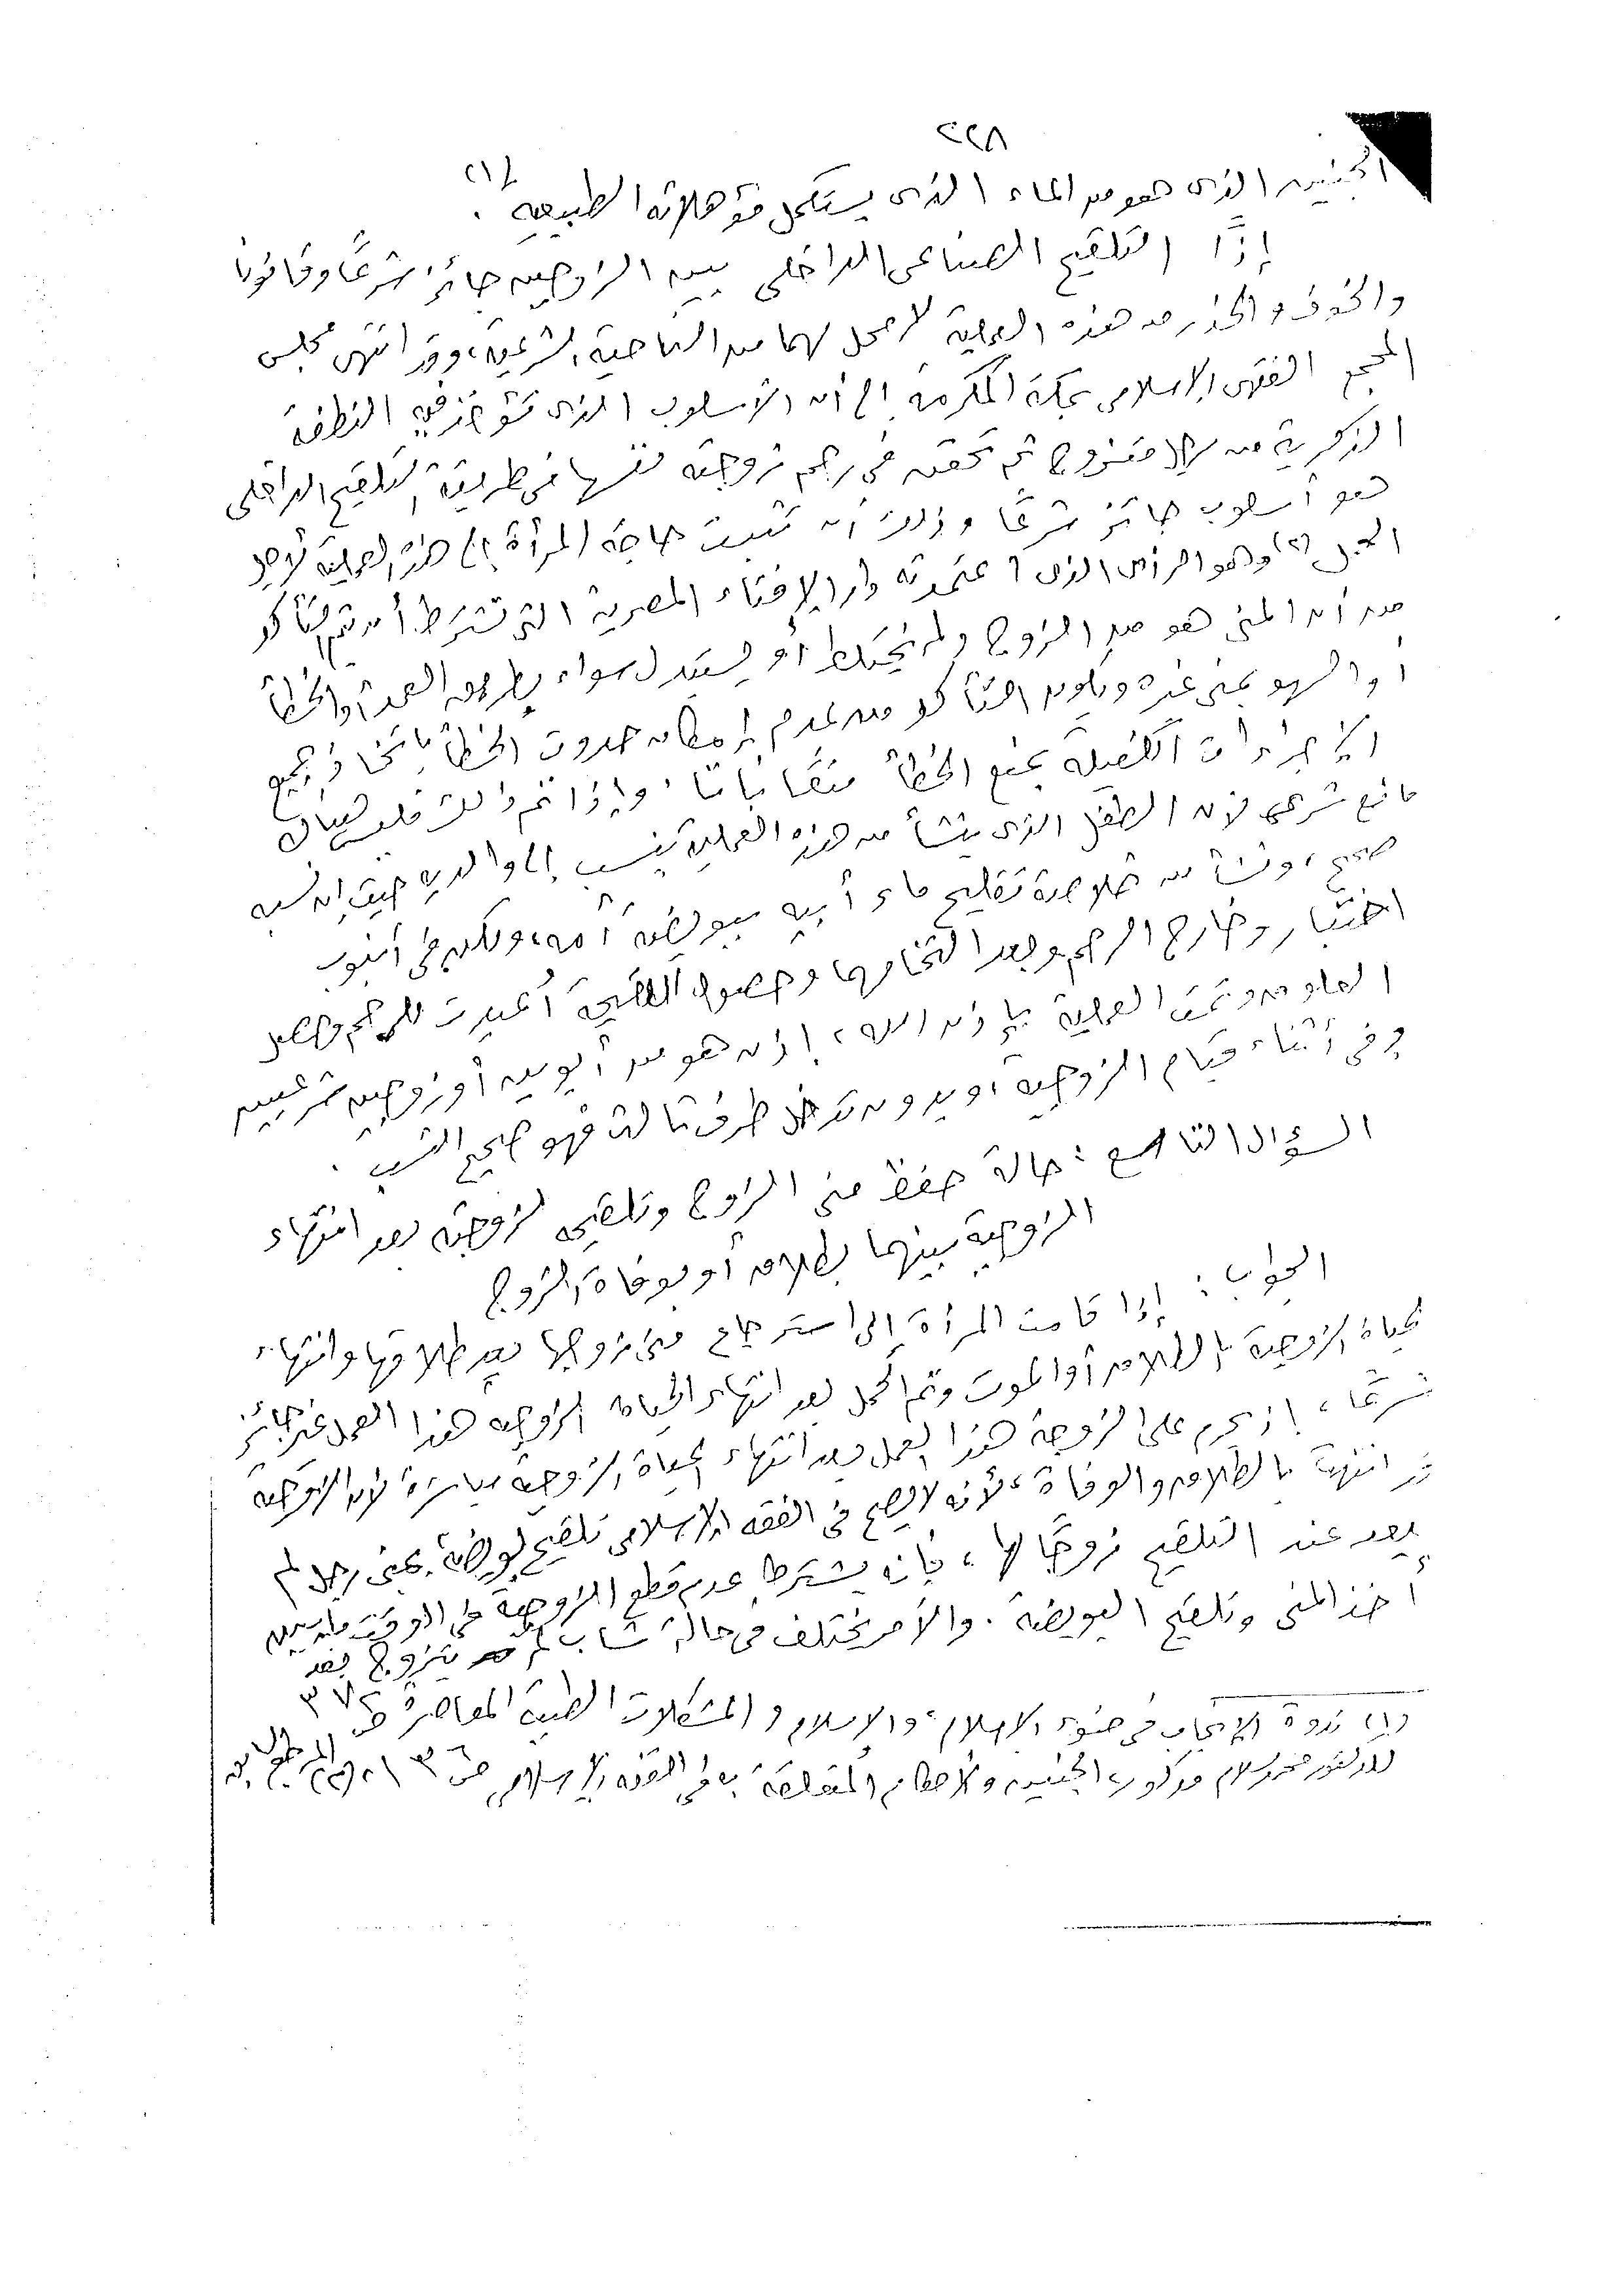 ٢٢٨
الجنين الذى هو من الماء الذى يستكمل مؤهلاته الطبيعية (١).
إذًا التلقيح الصناعى الداخلى بين الزوجين جائز شرعًا وقانونًا
والخوف والحذر من هذه العملية لا محل لهما من الناحية الشرعية، وقد انتهى مجلس
المجمع الفقهى الإسلامى بمكة المكرمة إلى أن الأسلوب الذى تؤخذ فيه النطفة
الذكرية من رجل متزوج ثم تحقن فى رحم زوجته نفسها فى طريقة التلقيح الداخلى
هو أسلوب جائز شرعًا وذلك أن تثبت حاجة المرأة إلى هذه العملية لأجل
الحمل (٢) وهو الرأى الذى اعتمدته دار الإفتاء المصرية التى تشترط أن يتم التأكد
من أن المنى هو من الزوج ولم يختلط أو يستبدل سواء بطريق العمد أو الخطأ
أو السهو بمنى غيره ويكون التأكد من عدم إمكان حدوث الخطأ باتخاذ جميع
الإجراءات الكفيلة بمنع الخطأ منعًا باتًا، وإذا تم ذلك فليس هناك
مانع شرعى لأن الطفل الذى ينشأ من هذه العملية ينسب إلى والديه حيث إن نسبه
صحيح، ونشأ من خلاصة تلقيح ماء أبيه ببويضة أمه، ولكن فى أنبوب
اختبار وخارج الرحم وبعد التحامها وحصول التلقيح أعيدت للرحم وحصل
العلوق وتمت العملية بإذن الله، إذن هو من أبوين أو زوجين شرعيين
وفى أثناء قيام الزوجية، وبدون تدخل طرف ثالث فهو صحيح النسب.
السؤال التاسع: حالة حفظ منى الزوج وتلقيح لزوجته بعد انتهاء
الزوجية بينهما بطلاق أو بوفاة الزوج
الجواب: إذا قامت المرأة إلى استرجاع منى زوجها بعد طلاقها وانتهاء
الحياة الزوجية بالطلاق أو الموت وتم الحمل بعد انتهاء الحياة الزوجية هذا العمل غير جائز
شرعًا، إذ يحرم على الزوجة هذا العمل بعد انتهاء الحياة الزوجية مباشرة لأن الزوجية
قد انتهت بالطلاق والوفاة، لأنه لا يصح فى الفقه الإسلامى تلقيح بويضة بمنى رجل لم
يعد عند التلقيح زوجًا لها، فإنه يشترط عدم قطع الزوجية فى الوقت ما بين
أخذ المنى وتلقيح البويضة. والأمر يختلف فى حالة شاب لم يتزوج بعد
(١) ندوة الإنجاب فى ضوء الإسلام، والإسلام والمشكلات الطبية المعاصرة ص
للدكتور محمد سلام مدكور، الجنين والأحكام المتعلقة به فى الفقه الإسلامى ص